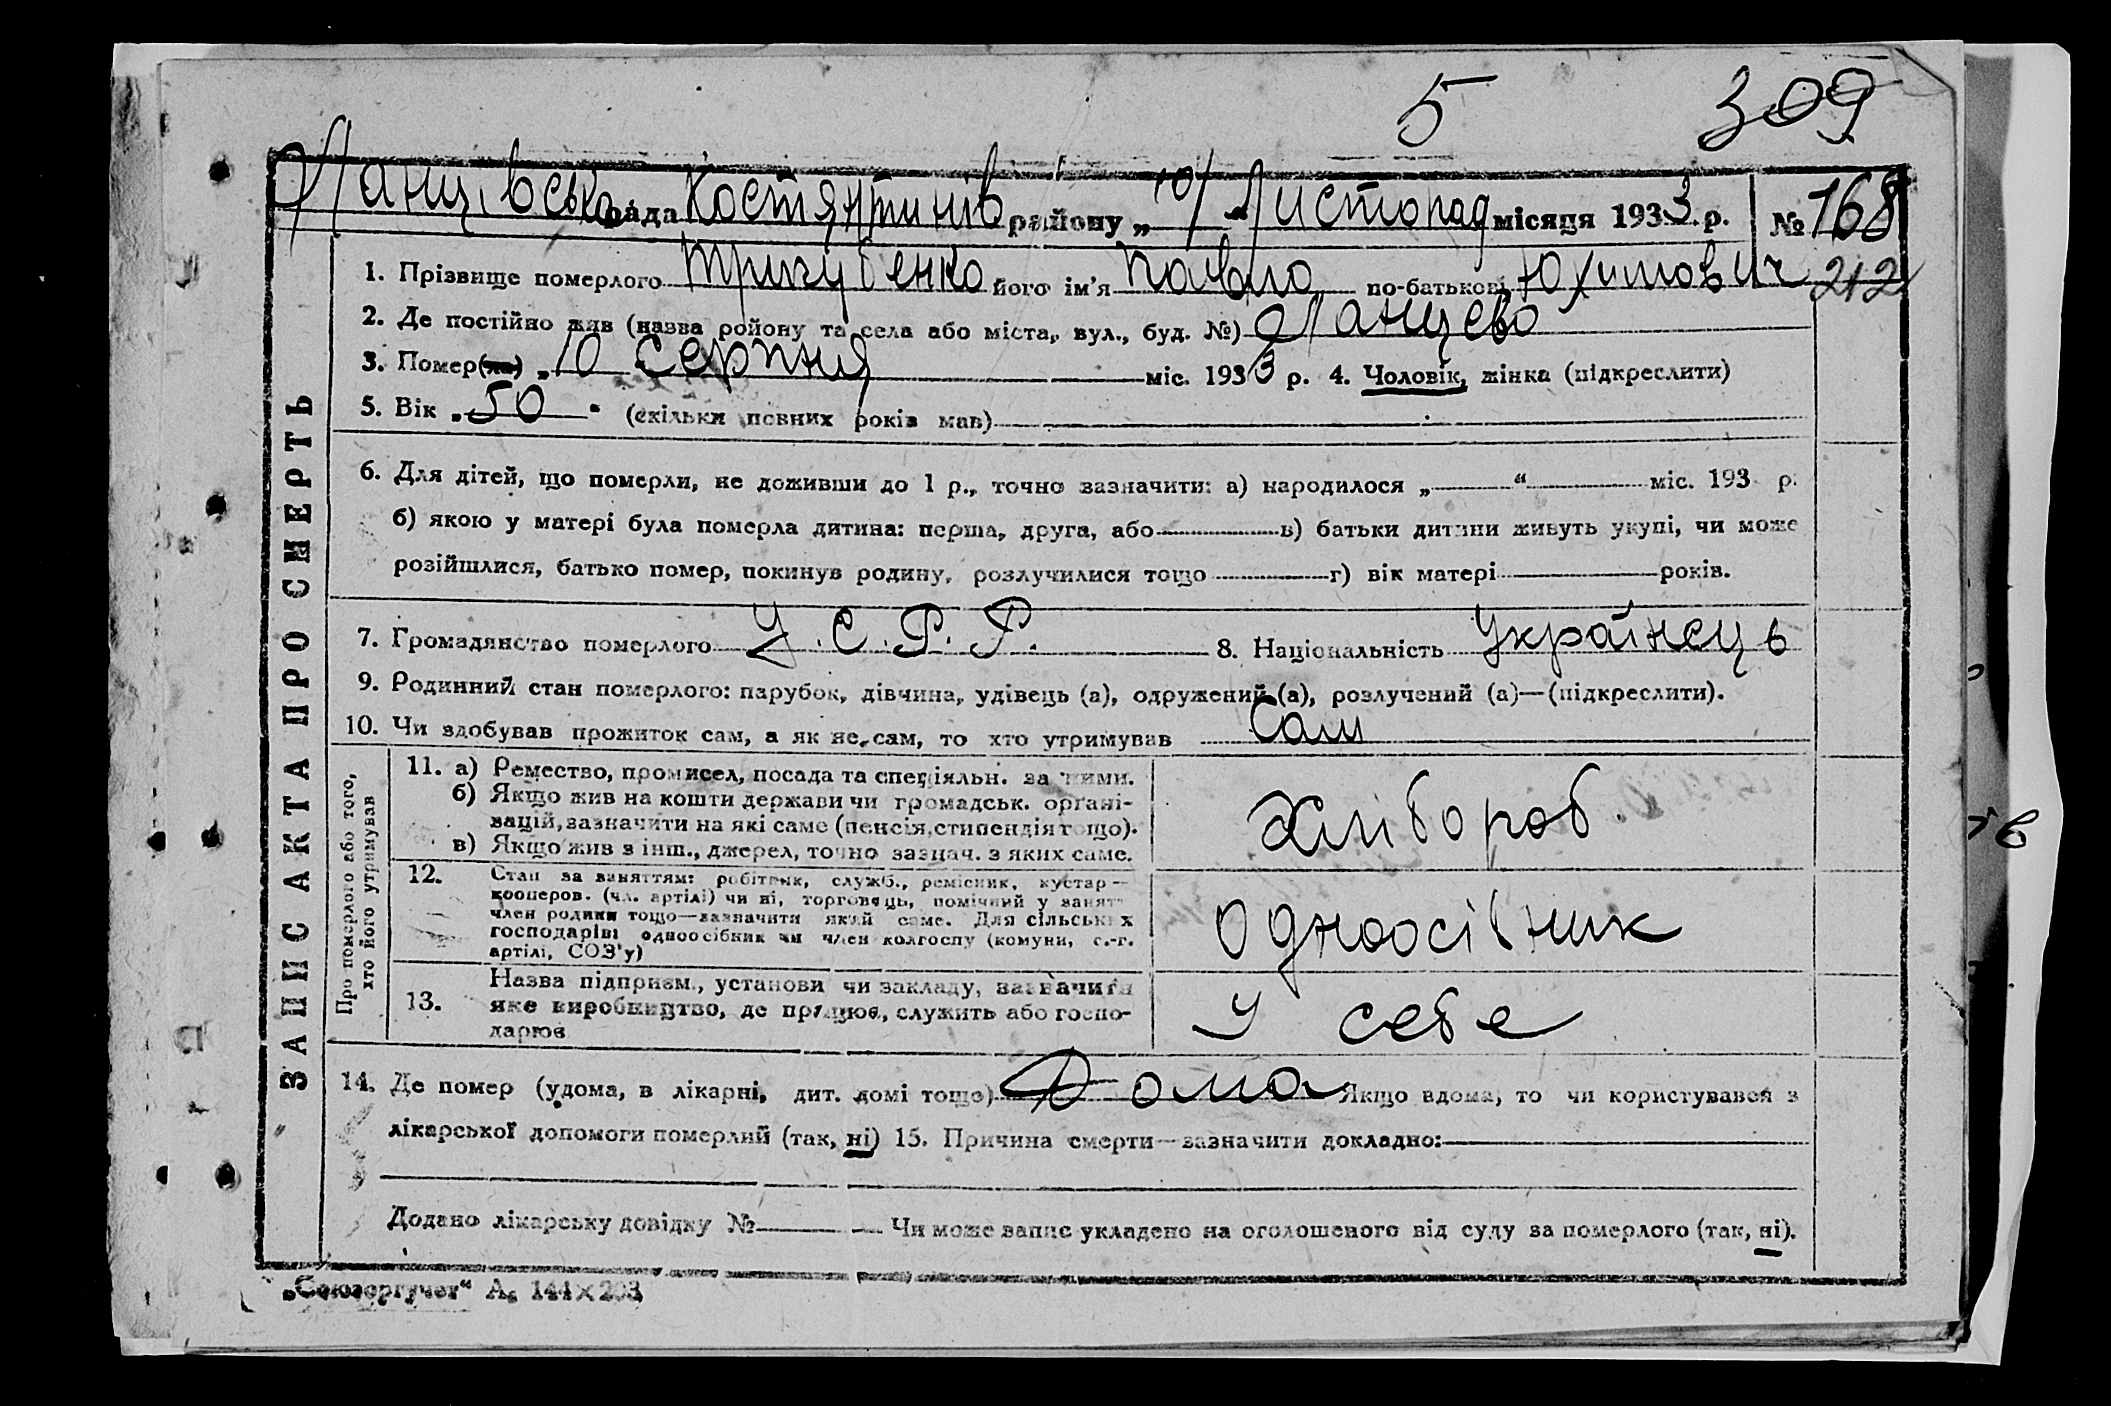 5 309
Ланцівська рада Костянтинів району „10" Листопад місяця 1933 р. № 168
1. Прізвище померлого Тригубенко його ім'я Павло по-батькові Юхимович 212
2. Де постійно жив (назва району та села або міста, вул., буд. №) Ланцево
3. Помер(ла) „10 серпня міс. 1933 р. 4. Чоловік, жінка (підкреслити)
5. Вік „50" (скільки повних років мав)
6. Для дітей, що померли, не доживши до 1 р., точно зазначити: а) народилося „ “ міс. 193 р.
б) якою у матері була померла дитина: перша, друга, або в) батьки дитини живуть укупі, чи може
розійшлися, батько помер, покинув родину, розлучилися тощо г) вік матері років.
7. Громадянство померлого У.С.Р.Р. 8. Національність Українець
9. Родинний стан померлого: парубок, дівчина, удівець (а), одружений (а), розлучений (а)—(підкреслити).
10. Чи здобував прожиток сам, а як не сам, то хто утримував Сам
ЗАПИС АКТА ПРО СМЕРТЬ
Про померлого або того,
хто його утримував
11. а) Ремество, промисел, посада та спеціяльн. за ними.
б) Якщо жив на кошти держави чи громадськ. органі-
зацій, зазначити на які саме (пенсія, стипендія тощо).
в) Якщо жив з інш., джерел, точно зазнач. з яких саме.
Хлібороб
12. Стан за заняттям: робітник, служб., ремісник, кустар —
кооперов. (чл. артілі) чи ні, торговець, помічний у занят
член родини тощо—зазначити який саме. Для сільських
господарів: одноосібник чи член колгоспу (комуни, с.-г.
артілі, СОЗ'у)
Одноосібник
13. Назва підприєм., установи чи закладу, зазначити
яке виробництво, де працює, служить або госпо-
дарює
У себе
14. Де помер (удома, в лікарні, дит. домі тощо) Дома Якщо вдома, то чи користувався з
лікарської допомоги померлий (так, ні) 15. Причина смерти—зазначити докладно:
Додано лікарську довідку № Чи може запис укладено на оголошеного від суду за померлого (так, ні).
„Союзоргучет“ А, 144×203